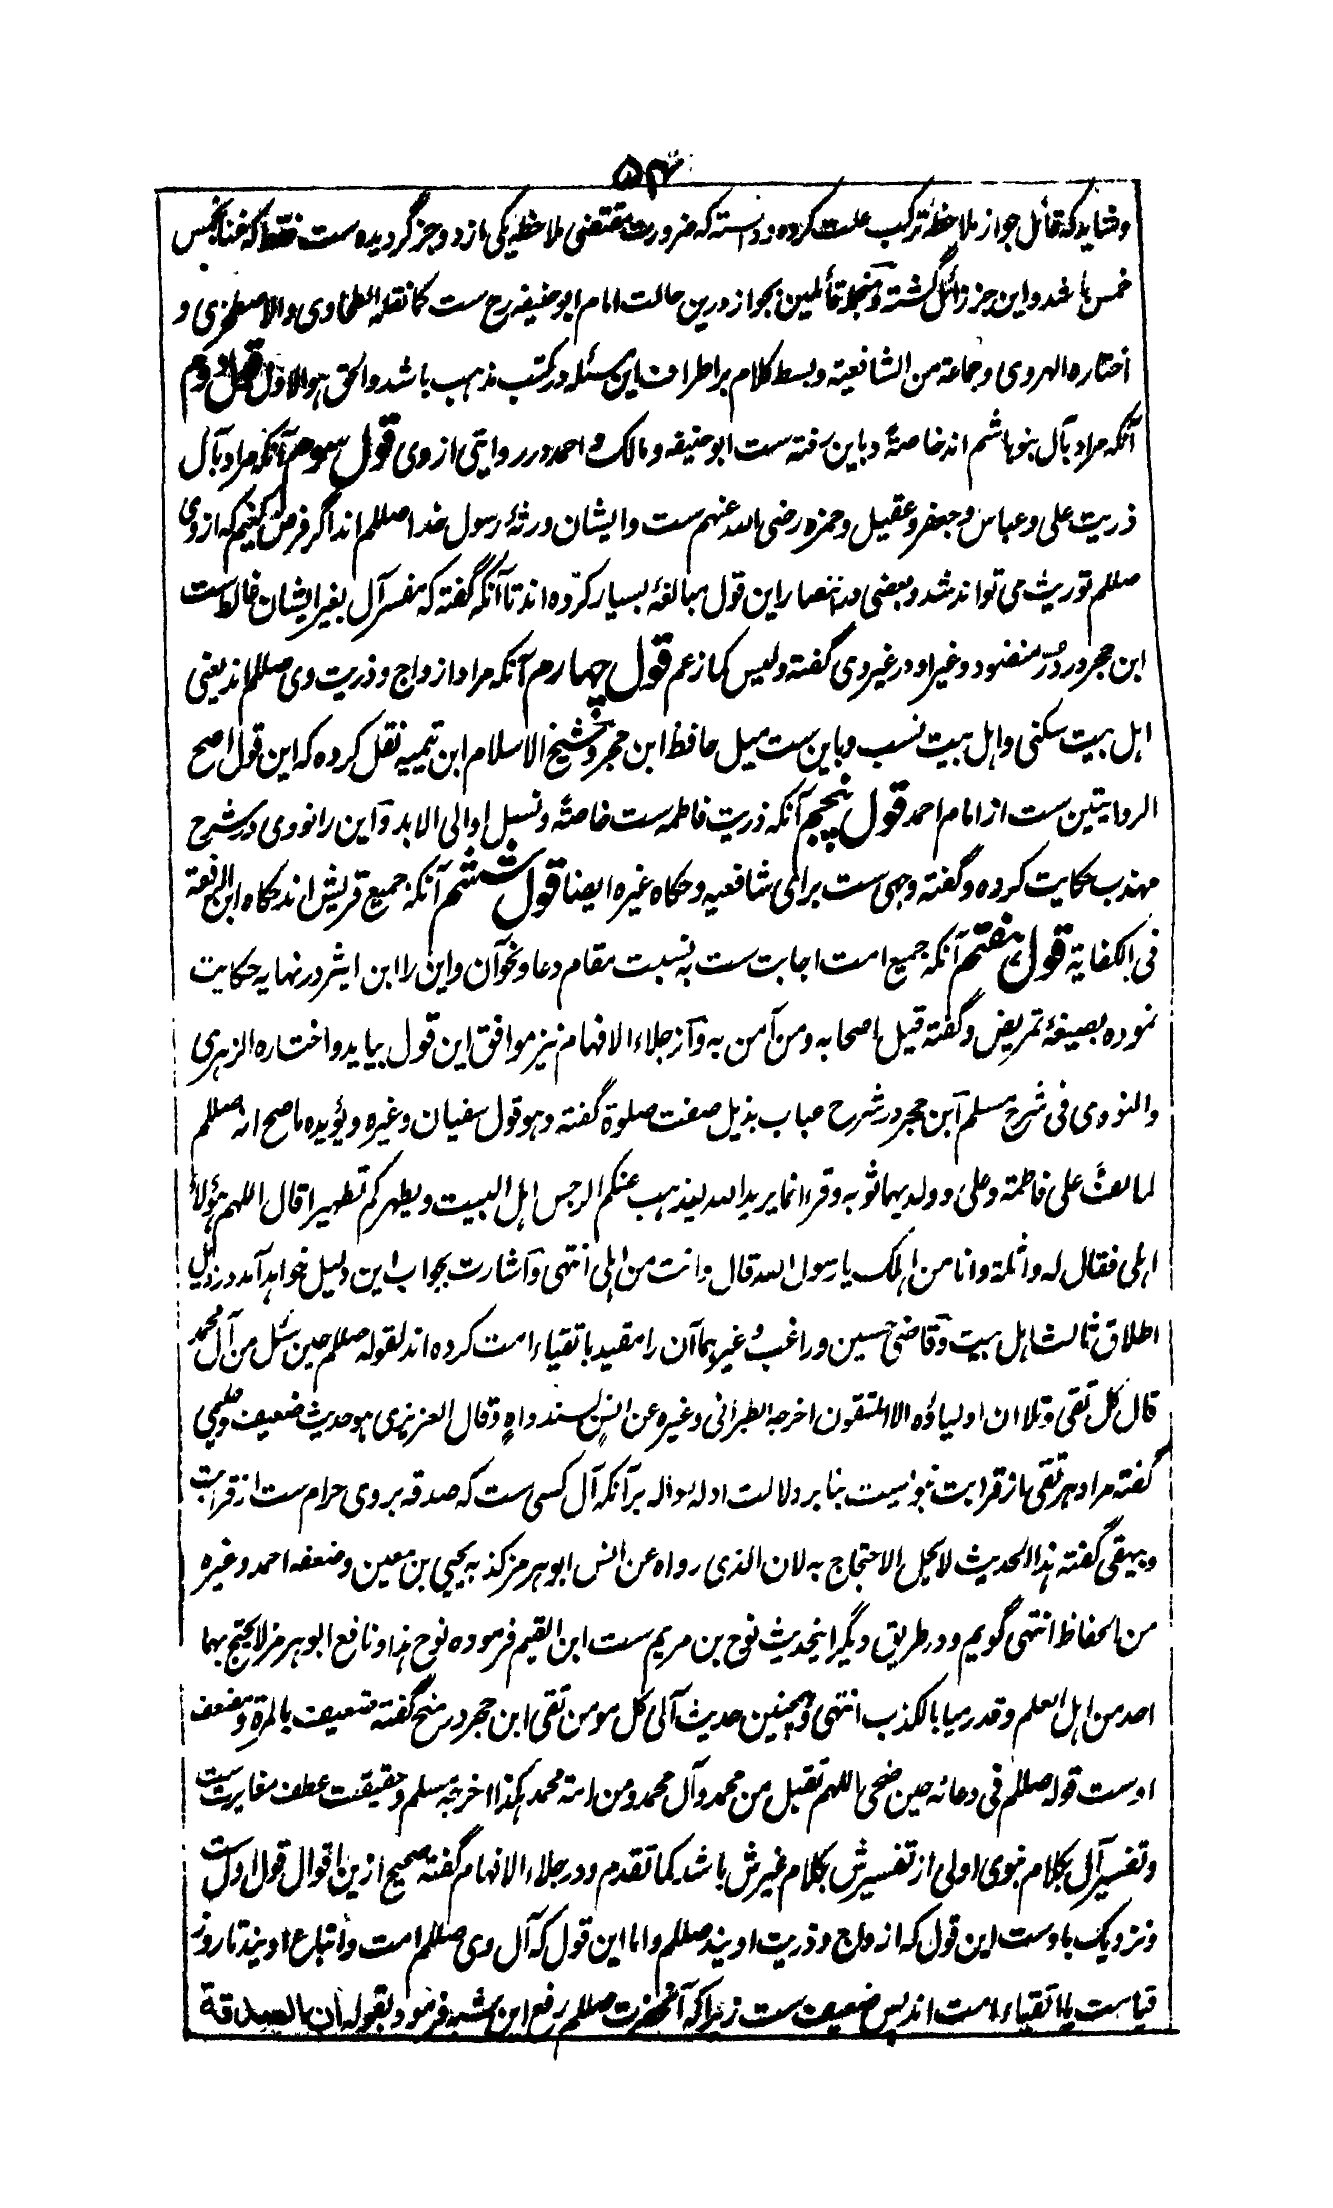 ۵۴
و شاید که قائل جواز ملاحظهٔ ترکب علت کرده و دانسته که ضرورت مقتضی ملاحظه یکی ازد و جز گردیده ست فقط که غنا بخمس
خمس باشد و این جز زائل گشته و منجمله قائلین بجواز درین حالت امام ابو حنیفه رح ست کما نقله الطحاوی والاصطخری و
اختاره الهروی و جماعة من الشافعیة و بسط کلام بر اطراف این مسئله در کتب مذهب باشد والحق هو الاول قول دوم
آنکه مراد بآل بنو هاشم اند خاصةً و باین رفته ست ابو حنیفه و مالک و احمد در روایتی از وی قول سوم آنکه مراد بآل
ذریت علی و عباس و جعفر و عقیل و حمزه رضی الله عنهم ست و ایشان ورثهٔ رسول خدا صللم اند اگر فرض کنیم که از وی
صللم توریث می تواند شد و بعضی در انتصار این قول مبالغهٔ بسیار کرده اند تا آنکه گفته که مفسر آل بغیر ایشان غالط ست
ابن حجر در درّ منضود و غیر او در غیر وی گفته و لیس کما زعم قول چهارم آنکه مراد ازواج و ذریت وی صللم اند یعنی
اهل بیت سکنی و اهل بیت نسب و باین ست میل حافظ ابن حجر و شیخ الاسلام ابن تیمیه نقل کرده که این قول اصح
الروایتین ست از امام احمد قول پنجم آنکه ذریت فاطمه ست خاصةً و نسل او الی الابد و این را نووی در شرح
مهذب حکایت کرده و گفته وجهی ست برای شافعیه و حکاه غیره ایضا قول ششم آنکه جمیع قریش اند حکاه ابن الرفعة
فی الکفایة قول هفتم آنکه جمیع امت اجابت ست به نسبت مقام دعا و نحو آن و این را ابن اثیر در نهایه حکایت
نموده بصیغهٔ تمریض و گفته قیل اصحابه و من آمن به و از جلاء الافهام نیز موافق این قول بیاید و اختاره الزهری
والنووی فی شرح مسلم ابن حجر در شرح عباب بذیل صفت صلوة گفته و هو قول سفیان و غیره و یؤیده ما صح انه صللم
لما بعث علی فاطمة و علی و ولدیهما ثوبه و قرء انما یرید الله لیذهب عنکم الرجس اهل البیت و یطهرکم تطهیرا قال اللهم هؤلاء
اهلی فقال له واثلة وانا من اهلک یا رسول الله قال وانت من اهلی انتهی و اشارت بجواب این دلیل خواهد آمد در ذیل
اطلاق ثالث اهل بیت و قاضی حسین و راغب و غیرهما آن را مقید باتقیاء امت کرده اند لقوله صللم حین سئل من آل محمد
قال کل تقی و تلا ان اولیاؤه الا المتقون اخرجه الطبرانی و غیره عن انس بسند واهٍ و قال العزیزی هو حدیث ضعیف و حلیمی
گفته مراد هر تقی از قرابت نبویست بنا بر دلالت ادله داله بر آنکه آل کسی ست که صدقه بر وی حرام ست از قرابت
و بیهقی گفته هذا الحدیث لا یحل الاحتجاج به لان الذی رواه عن انس ابو هرمز کذبه یحیی بن معین و ضعفه احمد و غیره
من الحفاظ انتهی گویم و در طریق دیگر اینحدیث نوح بن مریم ست ابن القیم فرموده نوح هذا و نافع ابو هرمز لا یحتج بهما
احد من اهل العلم و قد رمیا بالکذب انتهی و همچنین حدیث آلی کل مومن تقی ابن حجر در منح گفته ضعیف بالمرة و مضعف
اوست قوله صللم فی دعائه حین ضحی اللهم تقبل من محمد و آل محمد و من امة محمد هکذا اخرجه مسلم و حقیقت عطف مغایرت ست
و تفسیر آل بکلام نبوی اولی از تفسیرش بکلام غیرش باشد کما تقدم و در جلاء الافهام گفته صحیح ازین اقوال قول اول ست
و نزدیک باوست این قول که ازواج و ذریت اویند صللم و اما این قول که آل وی صللم امت و اتباع اویند تا روز
قیامت یا اتقیاء امت اند پس ضعیف ست زیرا که آنحضرت صللم رفع این شبه فرمود بقوله ان الصدقة